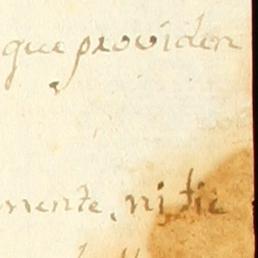 que providen
mente, ni tie